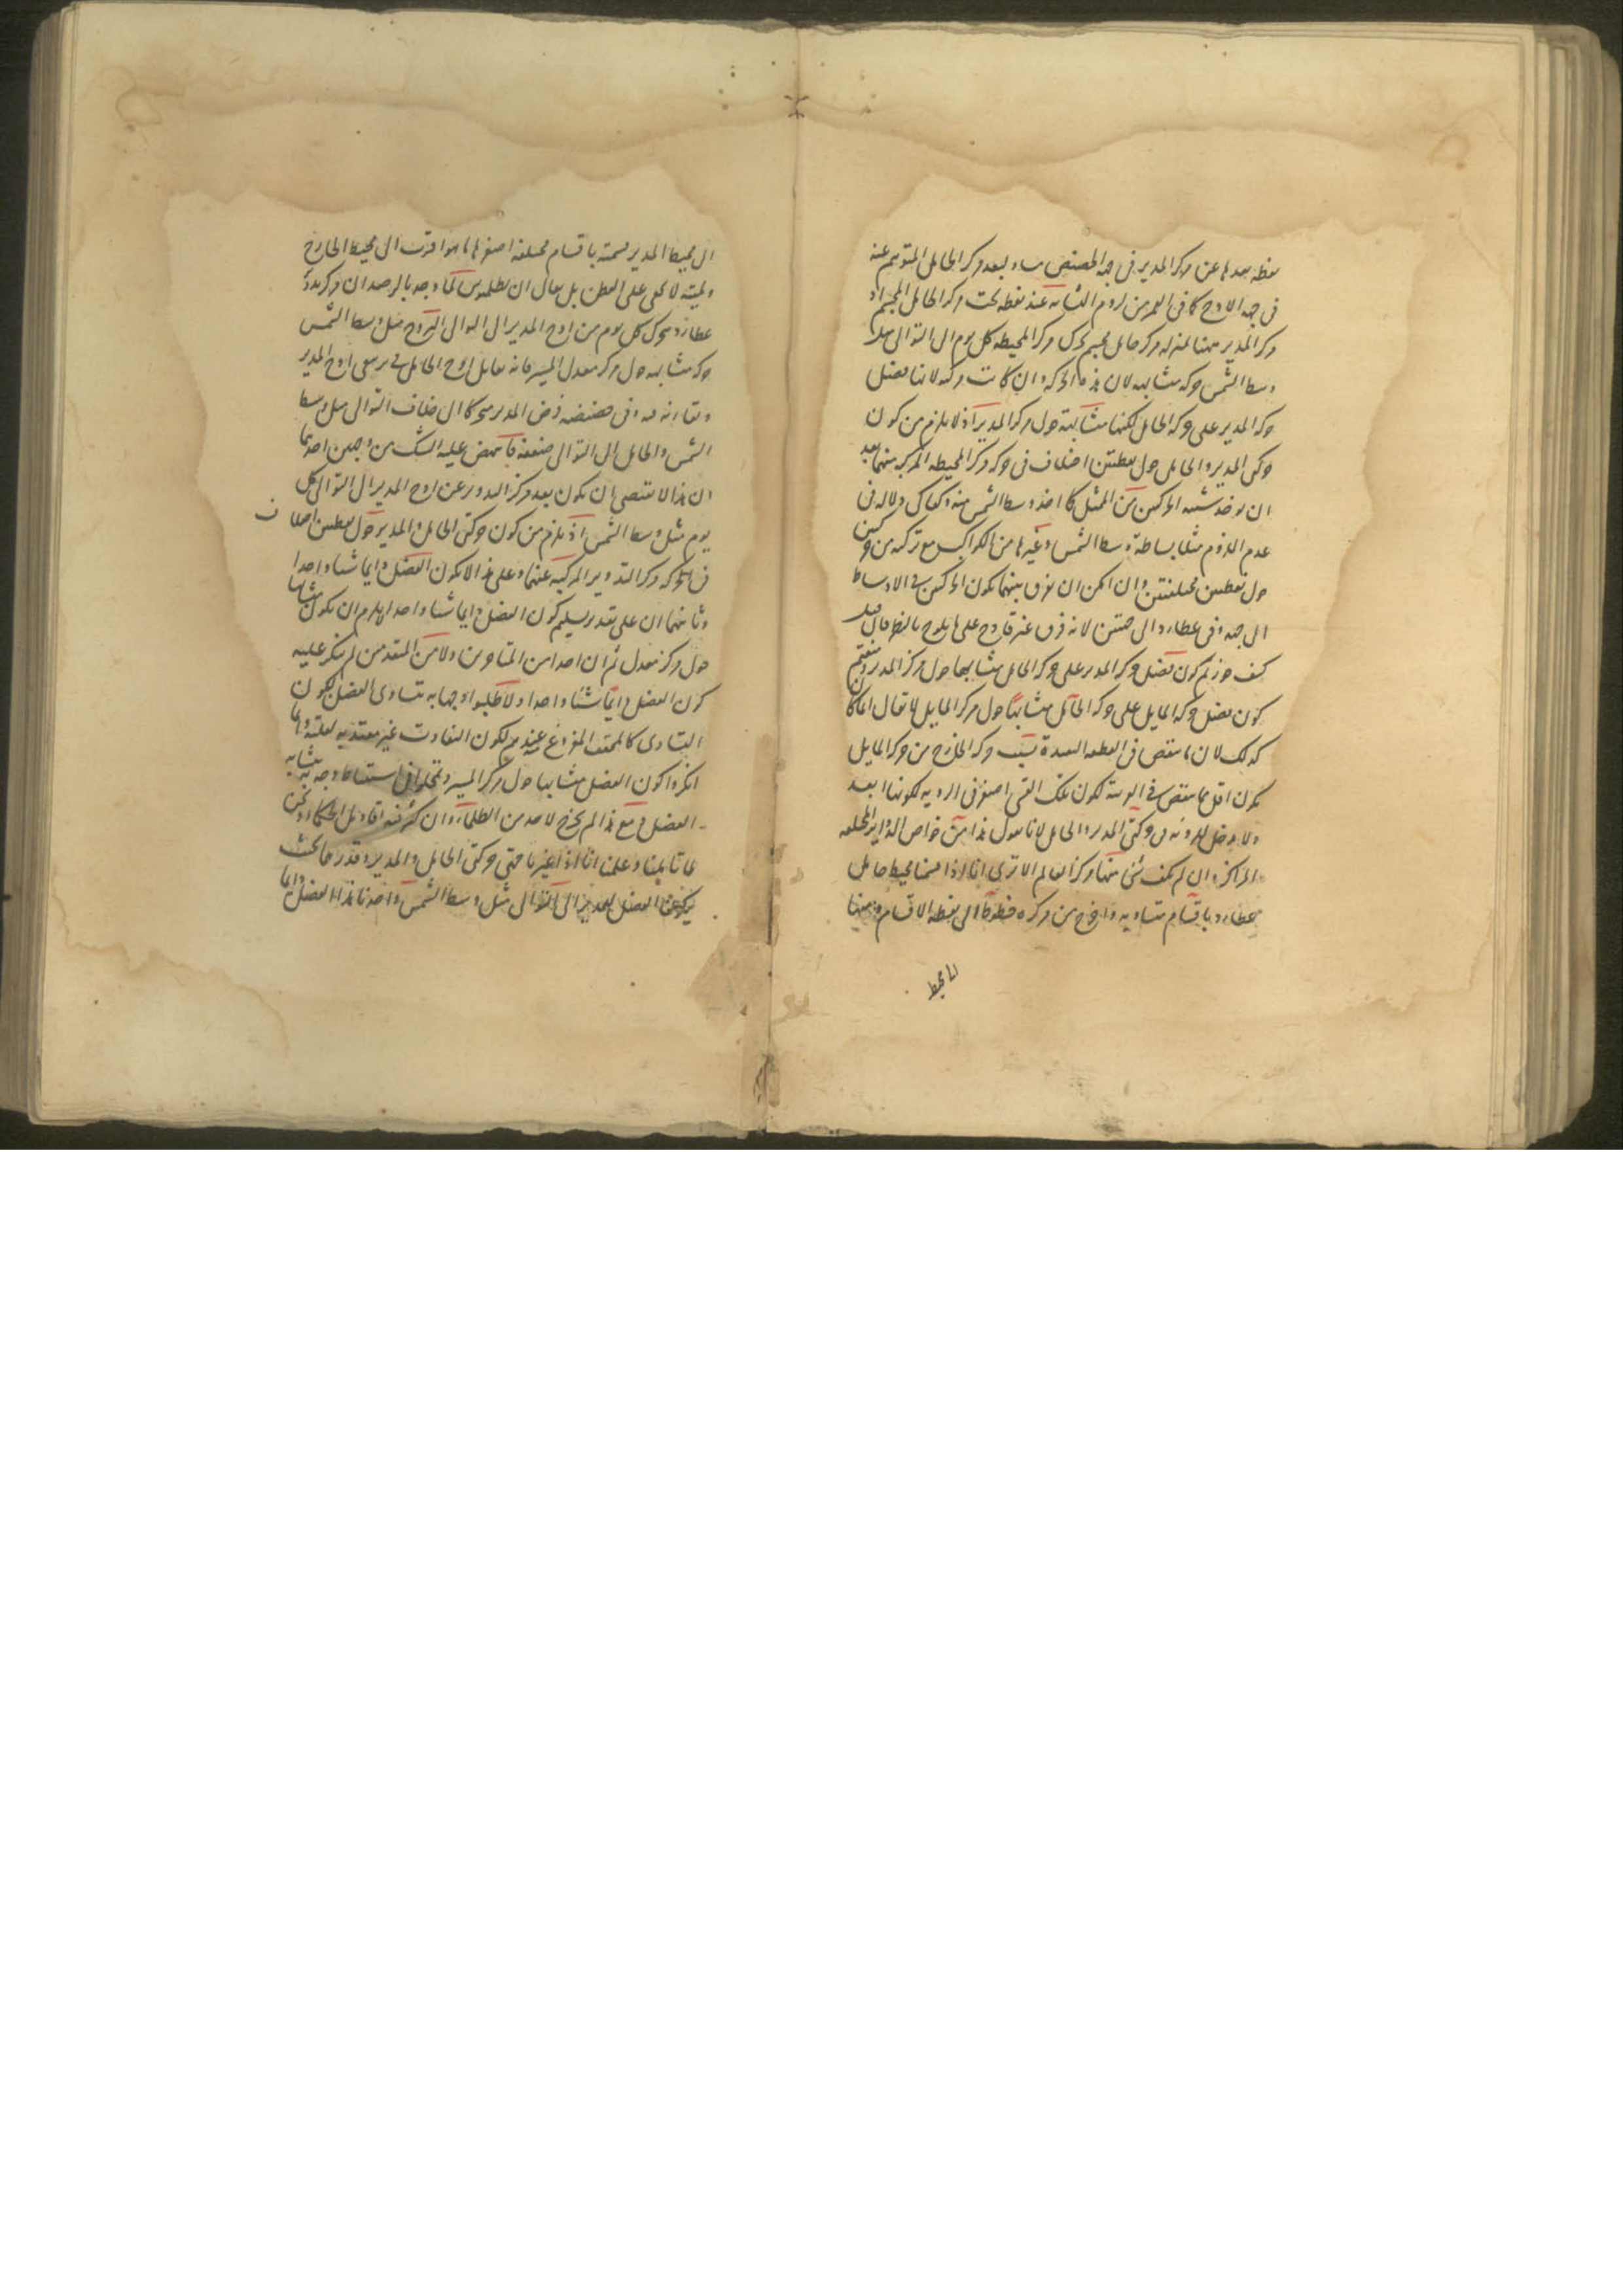 نقطه بعدها عن مركز المدير فى جهة الحضيض مساو لبعد مركز الحامل المتوهم عنه
فى جهة الاوج كما فى القمر من لزوم التشابه عند نقطه تحت مركز الحامل المجسم اذ
مركز المدير ههنا بمنزله مركز حامل مجسم تحرك مركز المحيطه كل يوم الى التوالى مثل
وسط الشمس حركه متشابهه لان هذه الحركه وان كانت مركبه لانها فضل
حركه المدير على حركه الحامل لكنها متشابهة حول مركز المدير اذ لا يلزم من كون
حركتى المدير والحامل حول نقطتين اختلاف فى حركه مركز المحيطه المركبه منهما بعد
ان يوخذ شبيه الحركتين من الممثل كما اخذ وسط الشمس منه وكفاك دلاله فى
عدم اللزوم مثلا بساطة وسط الشمس وغيرها من الكواكب مع تركبه من حركتين
حول نقطتين مختلفتين وان امكن ان يفرق بينهما بكون الحركتين فى الاوساط
الى جهه وفى عطارد الى جهتين لانه فرق غير قادح على ما يلوح بالنظر فان قيل
كيف جوزتم كون فضل حركه المدير على حركه الحامل متشابها حول مركز المدير ومنعتم
كون فضل حركه المايل على حركه الحامل متشابها حول مركز المايل لا يقال انما كان
كذلك لان ما ينقص فى القطعه البعيدة بسبب حركه الخارج من حركه المايل
يكون اقل مما ينقص فى القريبة لكون تلك القسى اصغر فى الرويه لكونها ابعد
ولا مدخل للرويه فى حركتى المدير والحامل لانا نقول هذا من خواص الدواير المختلفه
المراكز وان لم يكن شئ منها مركز العالم الا ترى انا اذا قسمنا محيط حامل
عطارد باقسام متساويه واخرج من مركزه خطوط الى نقطه الاقسام ومنها
الى محيط
الى محيط المدير قسمته باقسام مختلفه اصغرها ما هو اقرب الى محيط الخارج
ولميته لا تخفى على الفطن بل يقال ان بطلميوس لما وجد بالرصد ان مركز تدوير
عطارد يتحرك كل يوم من اوج المدير الى التوالى البروج مثل وسط الشمس
حركه متشابهه حول مركز معدل المسير فانه يقابل اوج الحامل فى تربيعى اوج المدير
ويقارنه فيه وفى حضيضه فرض المدير متحركا الى خلاف التوالى مثل وسط
الشمس والحامل الى التوالى ضعفه فاعترض عليه الشك من وجهين احدهما
ان هذا لا يقتضى ان يكون بعد مركز التدوير عن اوج المدير الى التوالى كل
يوم مثل وسط الشمس اذ يلزم من كون حركتى الحامل والمدير حول نقطتين اختلاف
فى الحركه مركز التدوير المركبه عنهما وعلى هذا لا يكون الفضل دايما شيئا واحدا
وثانيهما ان على تقدير تسليم كون الفضل دايما شيئا واحدا لا يلزم ان يكون متشابها
حول مركز معدل ثم ان احدا من المتاخرين ولا من المتقدمين لم ينكر عليه
كون الفضل دايما شيئا واحدا ولا طلبوا وجها به يتساوى الفضل لكون
التساوى كالمحقق المفروغ عنه عندهم لكون التفاوت غير معتد به لقلته وانما
انكروا كون الفضل متشابها حول مركز المسير وتمحلوا فى استنباط وجه به يتشابه
الفضل ومع هذا لم يخرج لاحد من الظلمات وان كثرت فيه اقاويل الحكماء ونحن
لما تاملنا وعلمنا انا اذا غيرنا جهتى حركتى الحامل والمدير وقدرهما بحيث
يكون الفضل بعد تغيير الى التوالى مثل وسط الشمس واخذنا هذا الفضل دايما